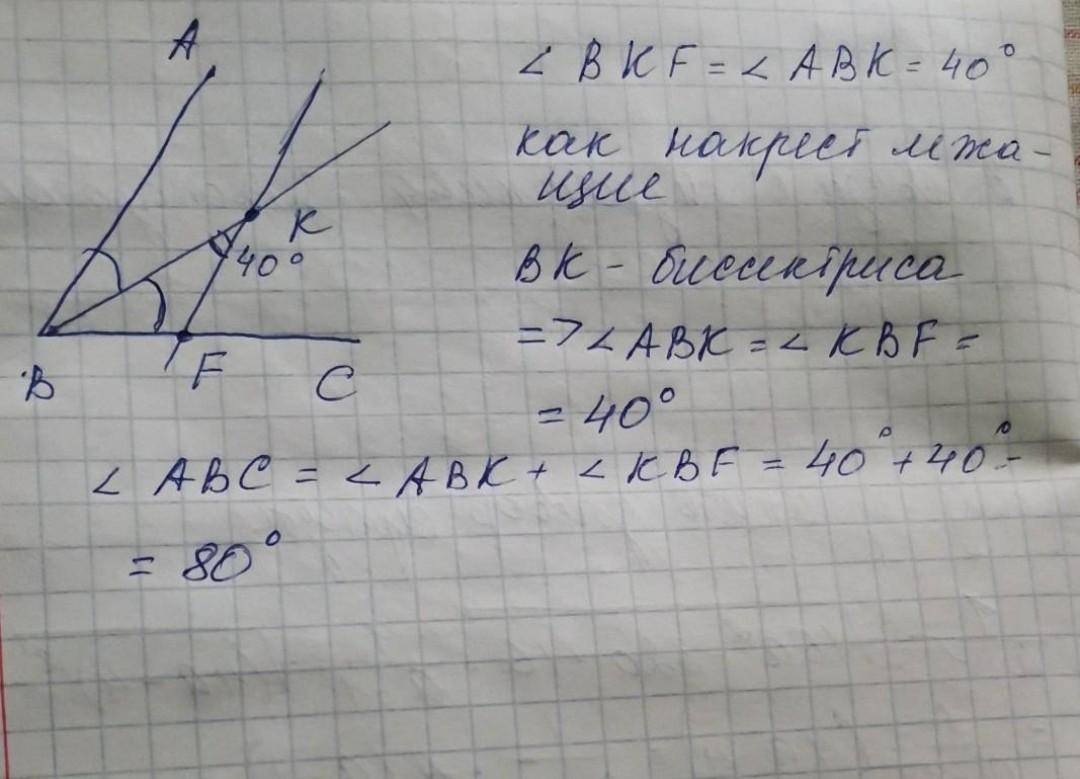 A
K
40°
B
F
C
∠ BKF = ∠ ABK = 40°
как накрест лежа-
щие
BK - биссектриса
=> ∠ ABK = ∠ KBF =
= 40°
∠ ABC = ∠ ABK + ∠ KBF = 40° + 40° =
= 80°